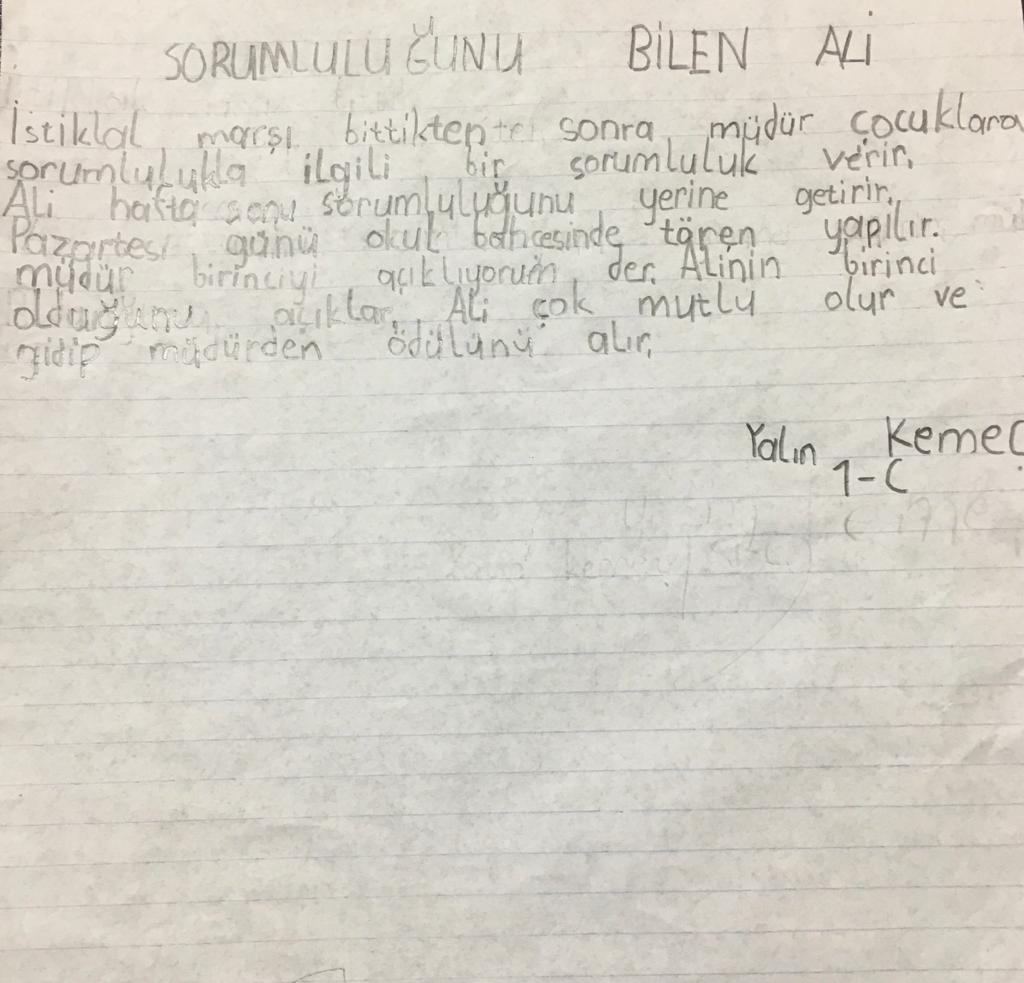 SORUMLULUĞUNU BİLEN ALİ
İstiklal marşı bittikten sonra müdür çocuklara
sorumlulukla ilgili bir sorumluluk verir.
Ali hafta sonu sorumluluğunu yerine getirir.
Pazartesi günü okul bahcesinde tören yapılır.
müdür birinciyi açıklıyorum der. Alinin birinci
olduğunu açıklar. Ali çok mutlu olur ve
gidip müdürden ödülünü alır.
Yalın
1-C